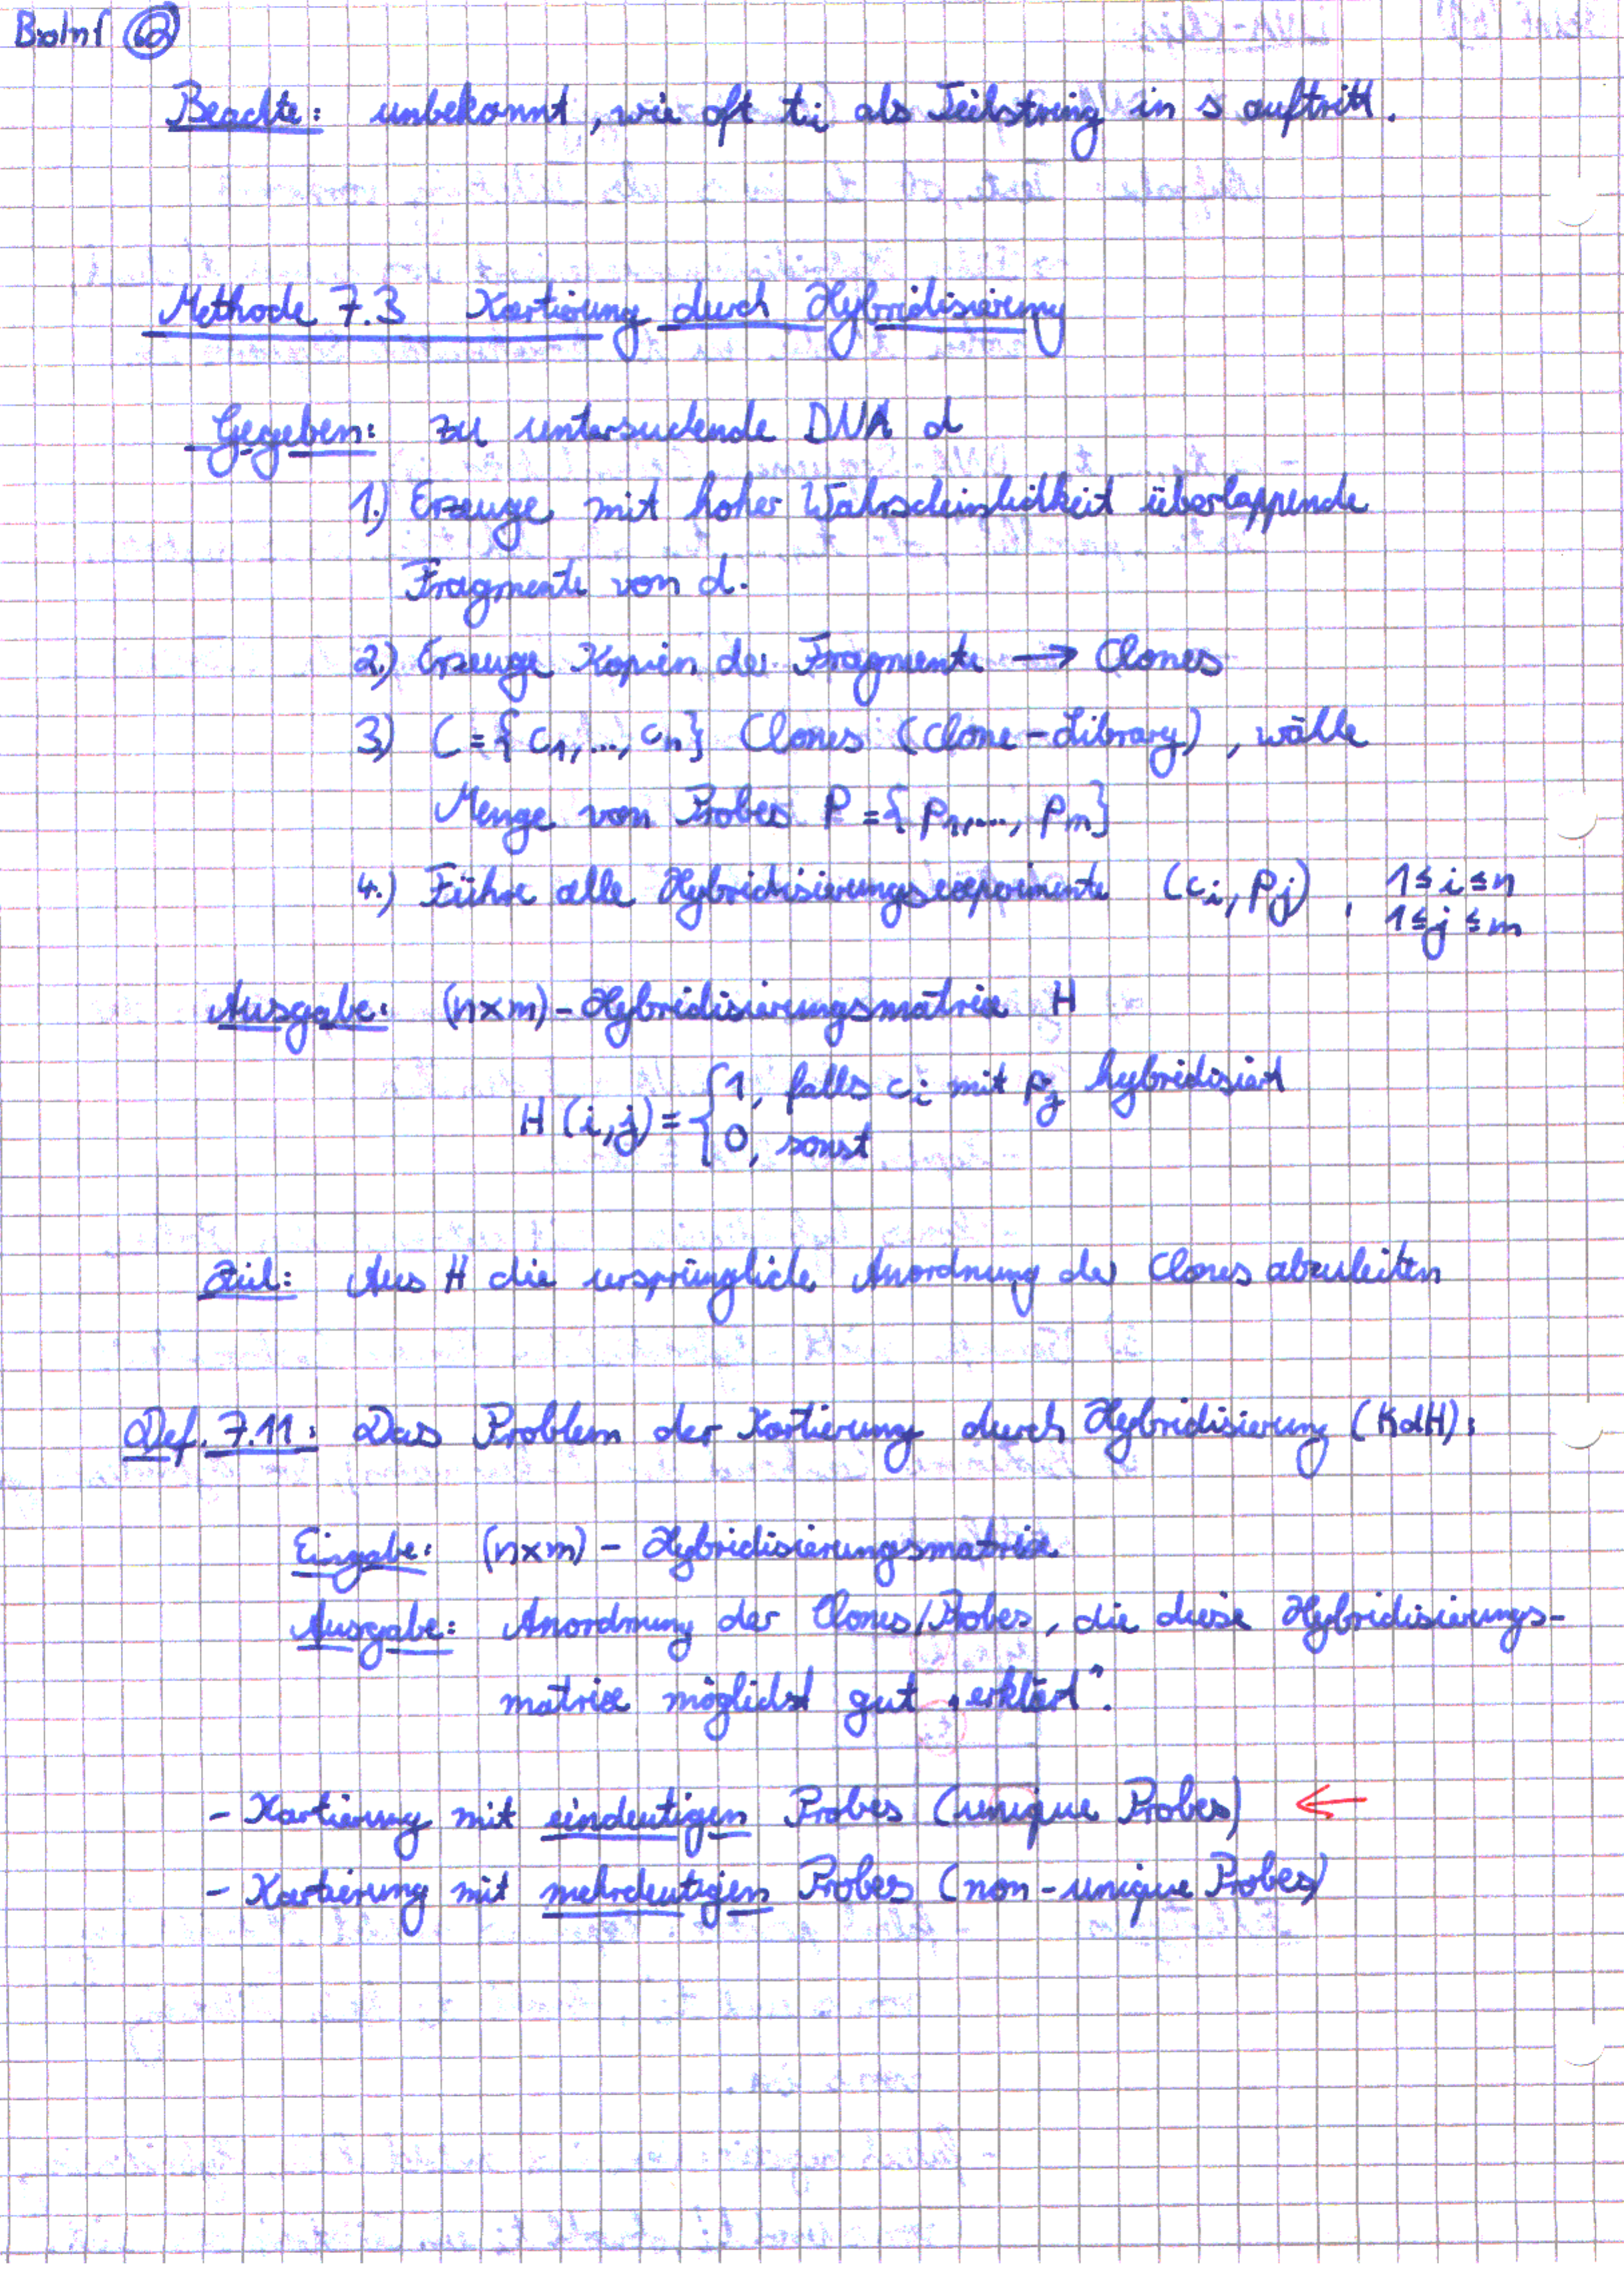 BioInf 62
Beachte: unbekannt, wie oft ti als Teilstring in s auftritt.
Methode 7.3 Kartierung durch Hybridisierung
Gegeben: zu untersuchende DNA d
1.) Erzeuge mit hoher Wahrscheinlichkeit überlappende
Fragmente von d.
2.) Erzeuge Kopien der Fragmente → Clones
3.) C = {c1, ..., cn} Clones (Clone-Library), wähle
Menge von Probes P = {p1, ..., pm}
4.) Führe alle Hybridisierungsexperimente (ci, pj), 1≤i≤n
1≤j≤m
Ausgabe: (n×m)-Hybridisierungsmatrix H
H(i,j) = { 1, falls ci mit pj hybridisiert
0, sonst
Ziel: Aus H die ursprüngliche Anordnung der Clones abzuleiten
Def. 7.11: Das Problem der Kartierung durch Hybridisierung (KdH):
Eingabe: (n×m) - Hybridisierungsmatrix
Ausgabe: Anordnung der Clones/Probes, die diese Hybridisierungs-
matrix möglichst gut „erklärt".
- Kartierung mit eindeutigen Probes (unique Probes) ←
- Kartierung mit mehrdeutigen Probes (non-unique Probes)